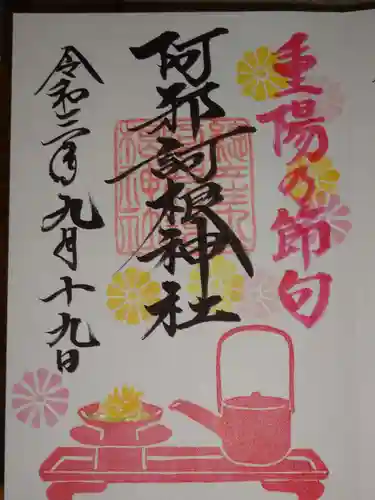 重陽の節句
阿邪訶根神社
令和二年九月十九日